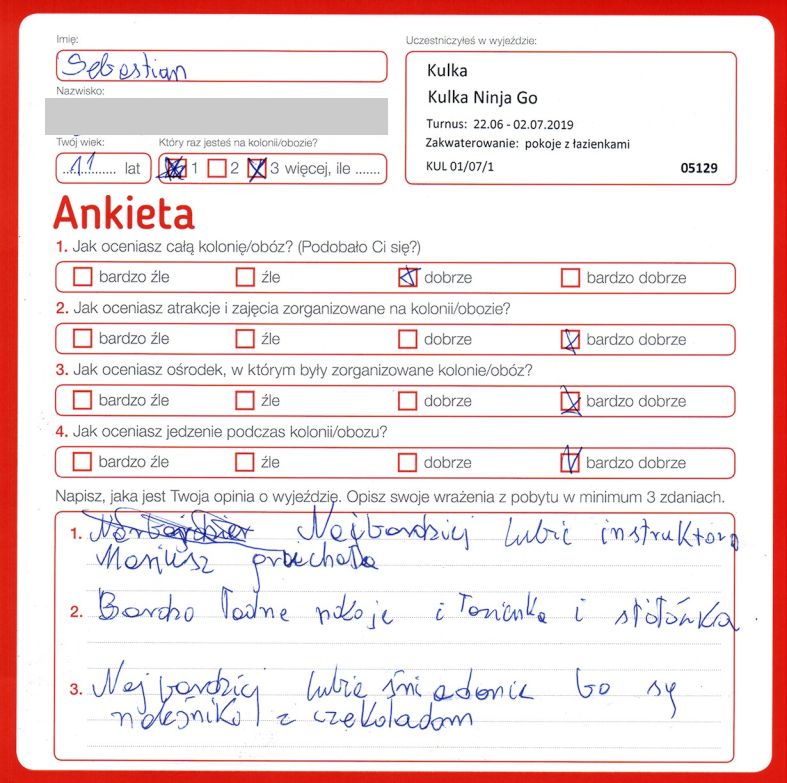 Imię:
Sebastian
Nazwisko:
Twój wiek:
11 lat
Który raz jesteś na kolonii/obozie?
1 2 3 więcej, ile .......
Uczestniczyłeś w wyjeździe:
Kulka
Kulka Ninja Go
Turnus: 22.06 - 02.07.2019
Zakwaterowanie: pokoje z łazienkami
KUL 01/07/1 05129
Ankieta
1. Jak oceniasz całą kolonię/obóz? (Podobało Ci się?)
bardzo źle źle dobrze bardzo dobrze
2. Jak oceniasz atrakcje i zajęcia zorganizowane na kolonii/obozie?
bardzo źle źle dobrze bardzo dobrze
3. Jak oceniasz ośrodek, w którym były zorganizowane kolonie/obóz?
bardzo źle źle dobrze bardzo dobrze
4. Jak oceniasz jedzenie podczas kolonii/obozu?
bardzo źle źle dobrze bardzo dobrze
Napisz, jaka jest Twoja opinia o wyjeździe. Opisz swoje wrażenia z pobytu w minimum 3 zdaniach.
1. Najbardziej lubię instruktora
Mariusz
2. Bardzo ładne pokoje i łazienka i stołówka
3. Najbardziej lubię śniadanie bo są
z czekoladom